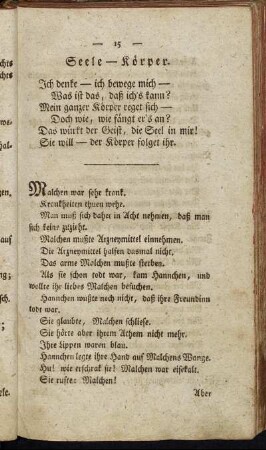 — 15 —
Seele — Körper.
Ich denke — ich bewege mich —
Was ist das, daß ich's kann?
Mein ganzer Körper reget sich —
Doch wie, wie fängt er's an?
Das würkt der Geist, die Seel in mir!
Sie will — der Körper folget ihr.
Malchen war sehr krank.
Krankheiten thuen wehe.
Man muß sich daher in Acht nehmen, daß man
sich keine zuzieht.
Malchen mußte Arzneymittel einnehmen.
Die Arzneymittel halfen dasmal nicht.
Das arme Malchen mußte sterben.
Als sie schon todt war, kam Hannchen, und
wollte ihr liebes Malchen besuchen.
Hannchen wußte noch nicht, daß ihre Freundinn
todt war.
Sie glaubte, Malchen schliefe.
Sie hörte aber ihrem Athem nicht mehr.
Ihre Lippen waren blau.
Hannchen legte ihre Hand auf Malchens Wange.
Hu! wie erschrak sie! Malchen war eiskalt.
Sie rufte: Malchen!
Aber